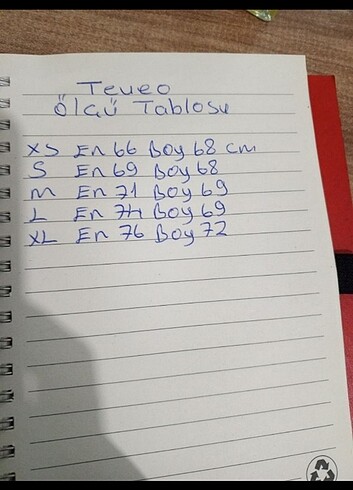 Teveo
Ölçü Tablosu
XS En 66 Boy 68 cm
S En 69 Boy 68
M En 71 Boy 69
L En 74 Boy 69
XL En 76 Boy 72